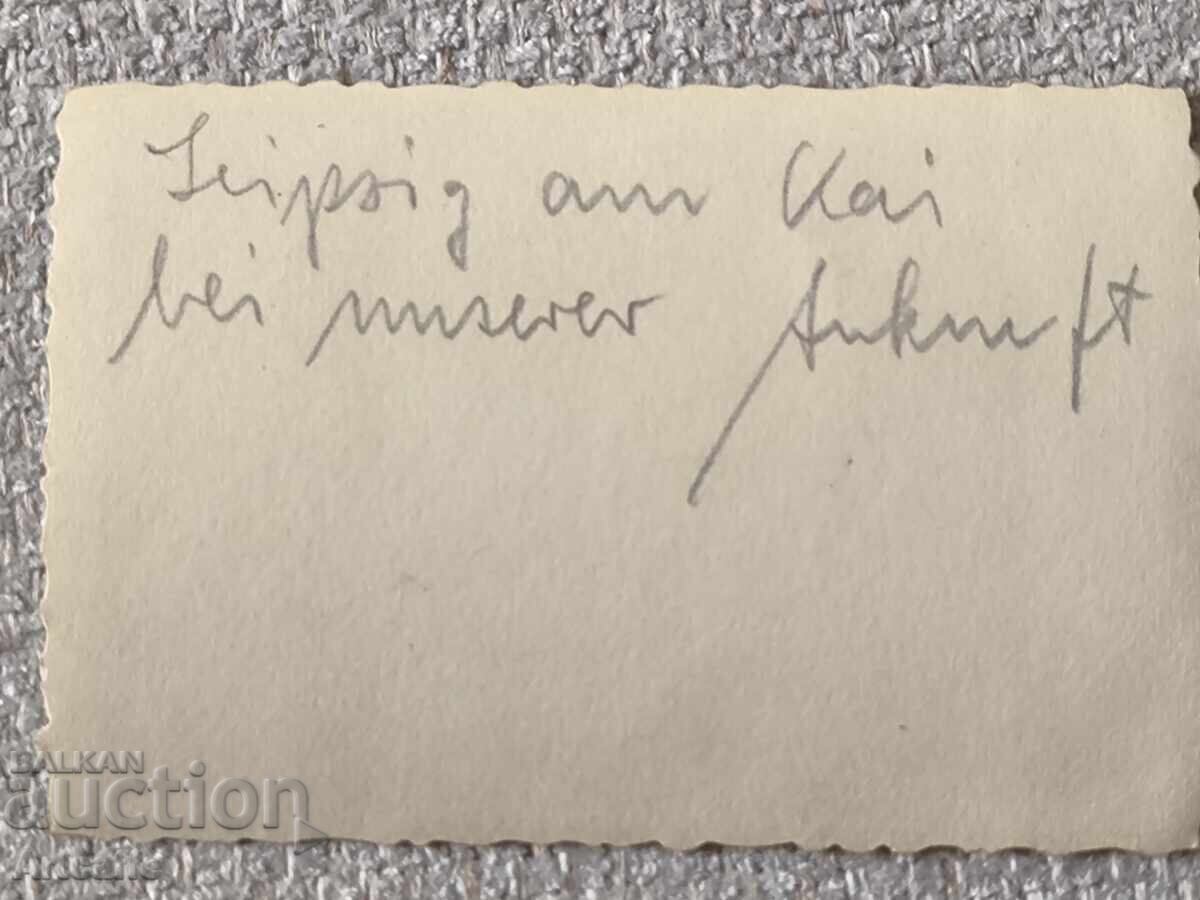 Leipzig am Kai
bei unserer Ankunft
BALKAN
auction